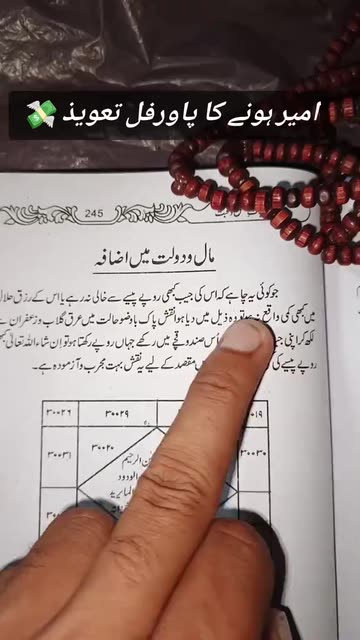 امیر ہونے کا پاورفل تعویذ 💸
245
مال و دولت میں اضافہ
جو کوئی یہ چاہے کہ اس کی جیب بھی روپے پیسے سے خالی نہ رہے یا اس کے رزق حلال
میں کبھی کمی واقع نہ ہو تو وہ ذیل میں دیا ہوا نقش پاک باوضو حالت میں عرق گلاب و زعفران سے
لکھ کر اپنی اس صندوقچے میں رکھے جہاں روپے رکھتا ہو تو ان شاء اللہ تعالیٰ
روپے پیسے کی مقصد کے لیے یہ نقش بہت مجرب و آزمودہ ہے۔
۳۰۰۲۶ ۳۰۰۲۹ ۰۱۹
۳۰۰۳۱ ۳۰۰۲۰ الرحیم ۳۰۰۳۰
الودود